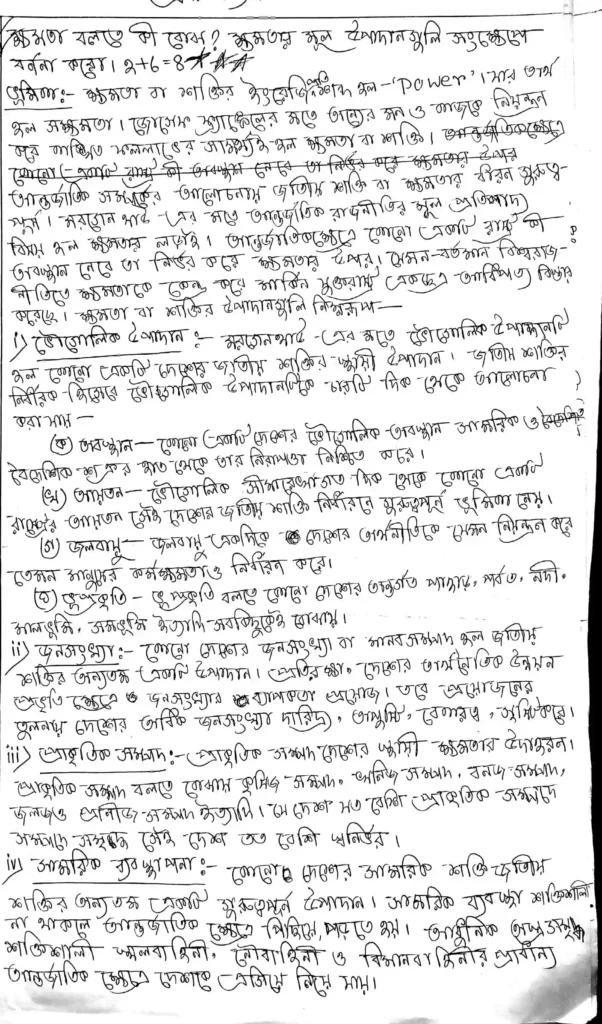 ক্ষমতা বলতে কী বোঝ? ক্ষমতার মূল উপাদানগুলি সংক্ষেপে
বর্ননা করো। ২+৬=৪
ভূমিকা:- ক্ষমতা বা শক্তির ইংরেজি প্রতিশব্দ হল-'Power'। যার অর্থ
হল সক্ষমতা। জোসেফ ফ্র্যাঙ্কেলের মতে অন্যের মন ও কাজকে নিয়ন্ত্রন
করে কাঙ্খিত ফললাভের সামর্থ্যই হল ক্ষমতা বা শক্তি। আন্তর্জাতিকক্ষেত্রে
কোনো একটি রাষ্ট্র কী অবস্থান নেবে তা নির্ভর করে ক্ষমতার উপর
আন্তর্জাতিক সম্পর্কের আলোচনায় জাতীয় শক্তি বা ক্ষমতার ধারনা গুরুত্ব-
পূর্ন। মরগেনথাউ-এর মতে আন্তর্জাতিক রাজনীতির মূল প্রতিপাদ্য
বিষয় হল ক্ষমতার লড়াই। আন্তর্জাতিকক্ষেত্রে কোনো একটি রাষ্ট্র কী
অবস্থান নেবে তা নির্ভর করে ক্ষমতার উপর। যেমন-বর্তমান বিশ্বরাজ-
নীতিতে ক্ষমতাকে কেন্দ্র করে মার্কিন যুক্তরাষ্ট্র একছত্র আধিপত্য বিস্তার
করেছে। ক্ষমতা বা শক্তির উপাদানগুলি নিম্নরূপ—
i) ভৌগোলিক উপাদান:- মরগেনথাউ-এর মতে ভৌগোলিক উপাদানটি
হল কোনো একটি দেশের জাতীয় শক্তির স্থায়ী উপাদান। জাতীয় শক্তির
নির্ধারক হিসেবে ভৌগোলিক উপাদানটিকে চারটি দিক থেকে আলোচনা
করা যায়—
(ক) অবস্থান— কোনো একটি দেশের ভৌগোলিক অবস্থান সামরিক ও
বৈদেশিক শত্রুর হাত থেকে তার নিরাপত্তা নিশ্চিত করে।
(খ) আয়তন— ভৌগোলিক সীমারেখাগত দিক থেকে কোনো একটি
রাষ্ট্রের আয়তন সেই দেশের জাতীয় শক্তি নির্ধারনে গুরুত্বপূর্ন ভূমিকা নেয়।
(গ) জলবায়ু— জলবায়ু একদিকে দেশের অর্থনীতিকে যেমন নিয়ন্ত্রন করে
তেমন মানুষের কর্মক্ষমতাও নির্ধারন করে।
(ঘ) ভূপ্রকৃতি- ভূপ্রকৃতি বলতে কোনো দেশের অন্তর্গত পাহাড়, পর্বত, নদী,
মালভূমি, সমভূমি ইত্যাদি সবকিছুকেই বোঝায়।
ii) জনসংখ্যা:- কোনো দেশের জনসংখ্যা বা মানবসম্পদ হল জাতীয়
শক্তির অন্যতম একটি উপাদান। প্রতিরক্ষা, দেশের অর্থনৈতিক উন্নয়ন
প্রভৃতি ক্ষেত্রে জনসংখ্যার ব্যাপকতা প্রযোজ্য। তবে প্রয়োজনের
তুলনায় দেশের অধিক জনসংখ্যা দারিদ্র, অপুষ্টি, বেকারত্ব, সৃষ্টি করে।
iii) প্রাকৃতিক সম্পদ:- প্রাকৃতিক সম্পদ দেশের স্থায়ী ক্ষমতার উদাহরন।
প্রাকৃতিক সম্পদ বলতে বোঝায় কৃষিজ সম্পদ, খনিজ সম্পদ, বনজ সম্পদ,
জলজ ও প্রানীজ সম্পদ ইত্যাদি। যে দেশ যত বেশি প্রাকৃতিক সম্পদে
সম্পদে সমৃদ্ধ সেই দেশ তত বেশি স্বনির্ভর।
iv) সামরিক ব্যবস্থাপনা:- কোনো দেশের সামরিক শক্তি জাতীয়
শক্তির অন্যতম একটি গুরুত্বপূর্ন উপাদান। সামরিক ব্যবস্থা শক্তিশালী
না থাকলে আন্তর্জাতিক ক্ষেত্রে পিছিয়ে পড়তে হয়। আধুনিক অস্ত্রসমৃদ্ধ
শক্তিশালী স্থলবাহিনী, নৌবাহিনী ও বিমানবাহিনীর প্রাধান্য
আন্তর্জাতিক ক্ষেত্রে দেশকে এগিয়ে নিয়ে যায়।